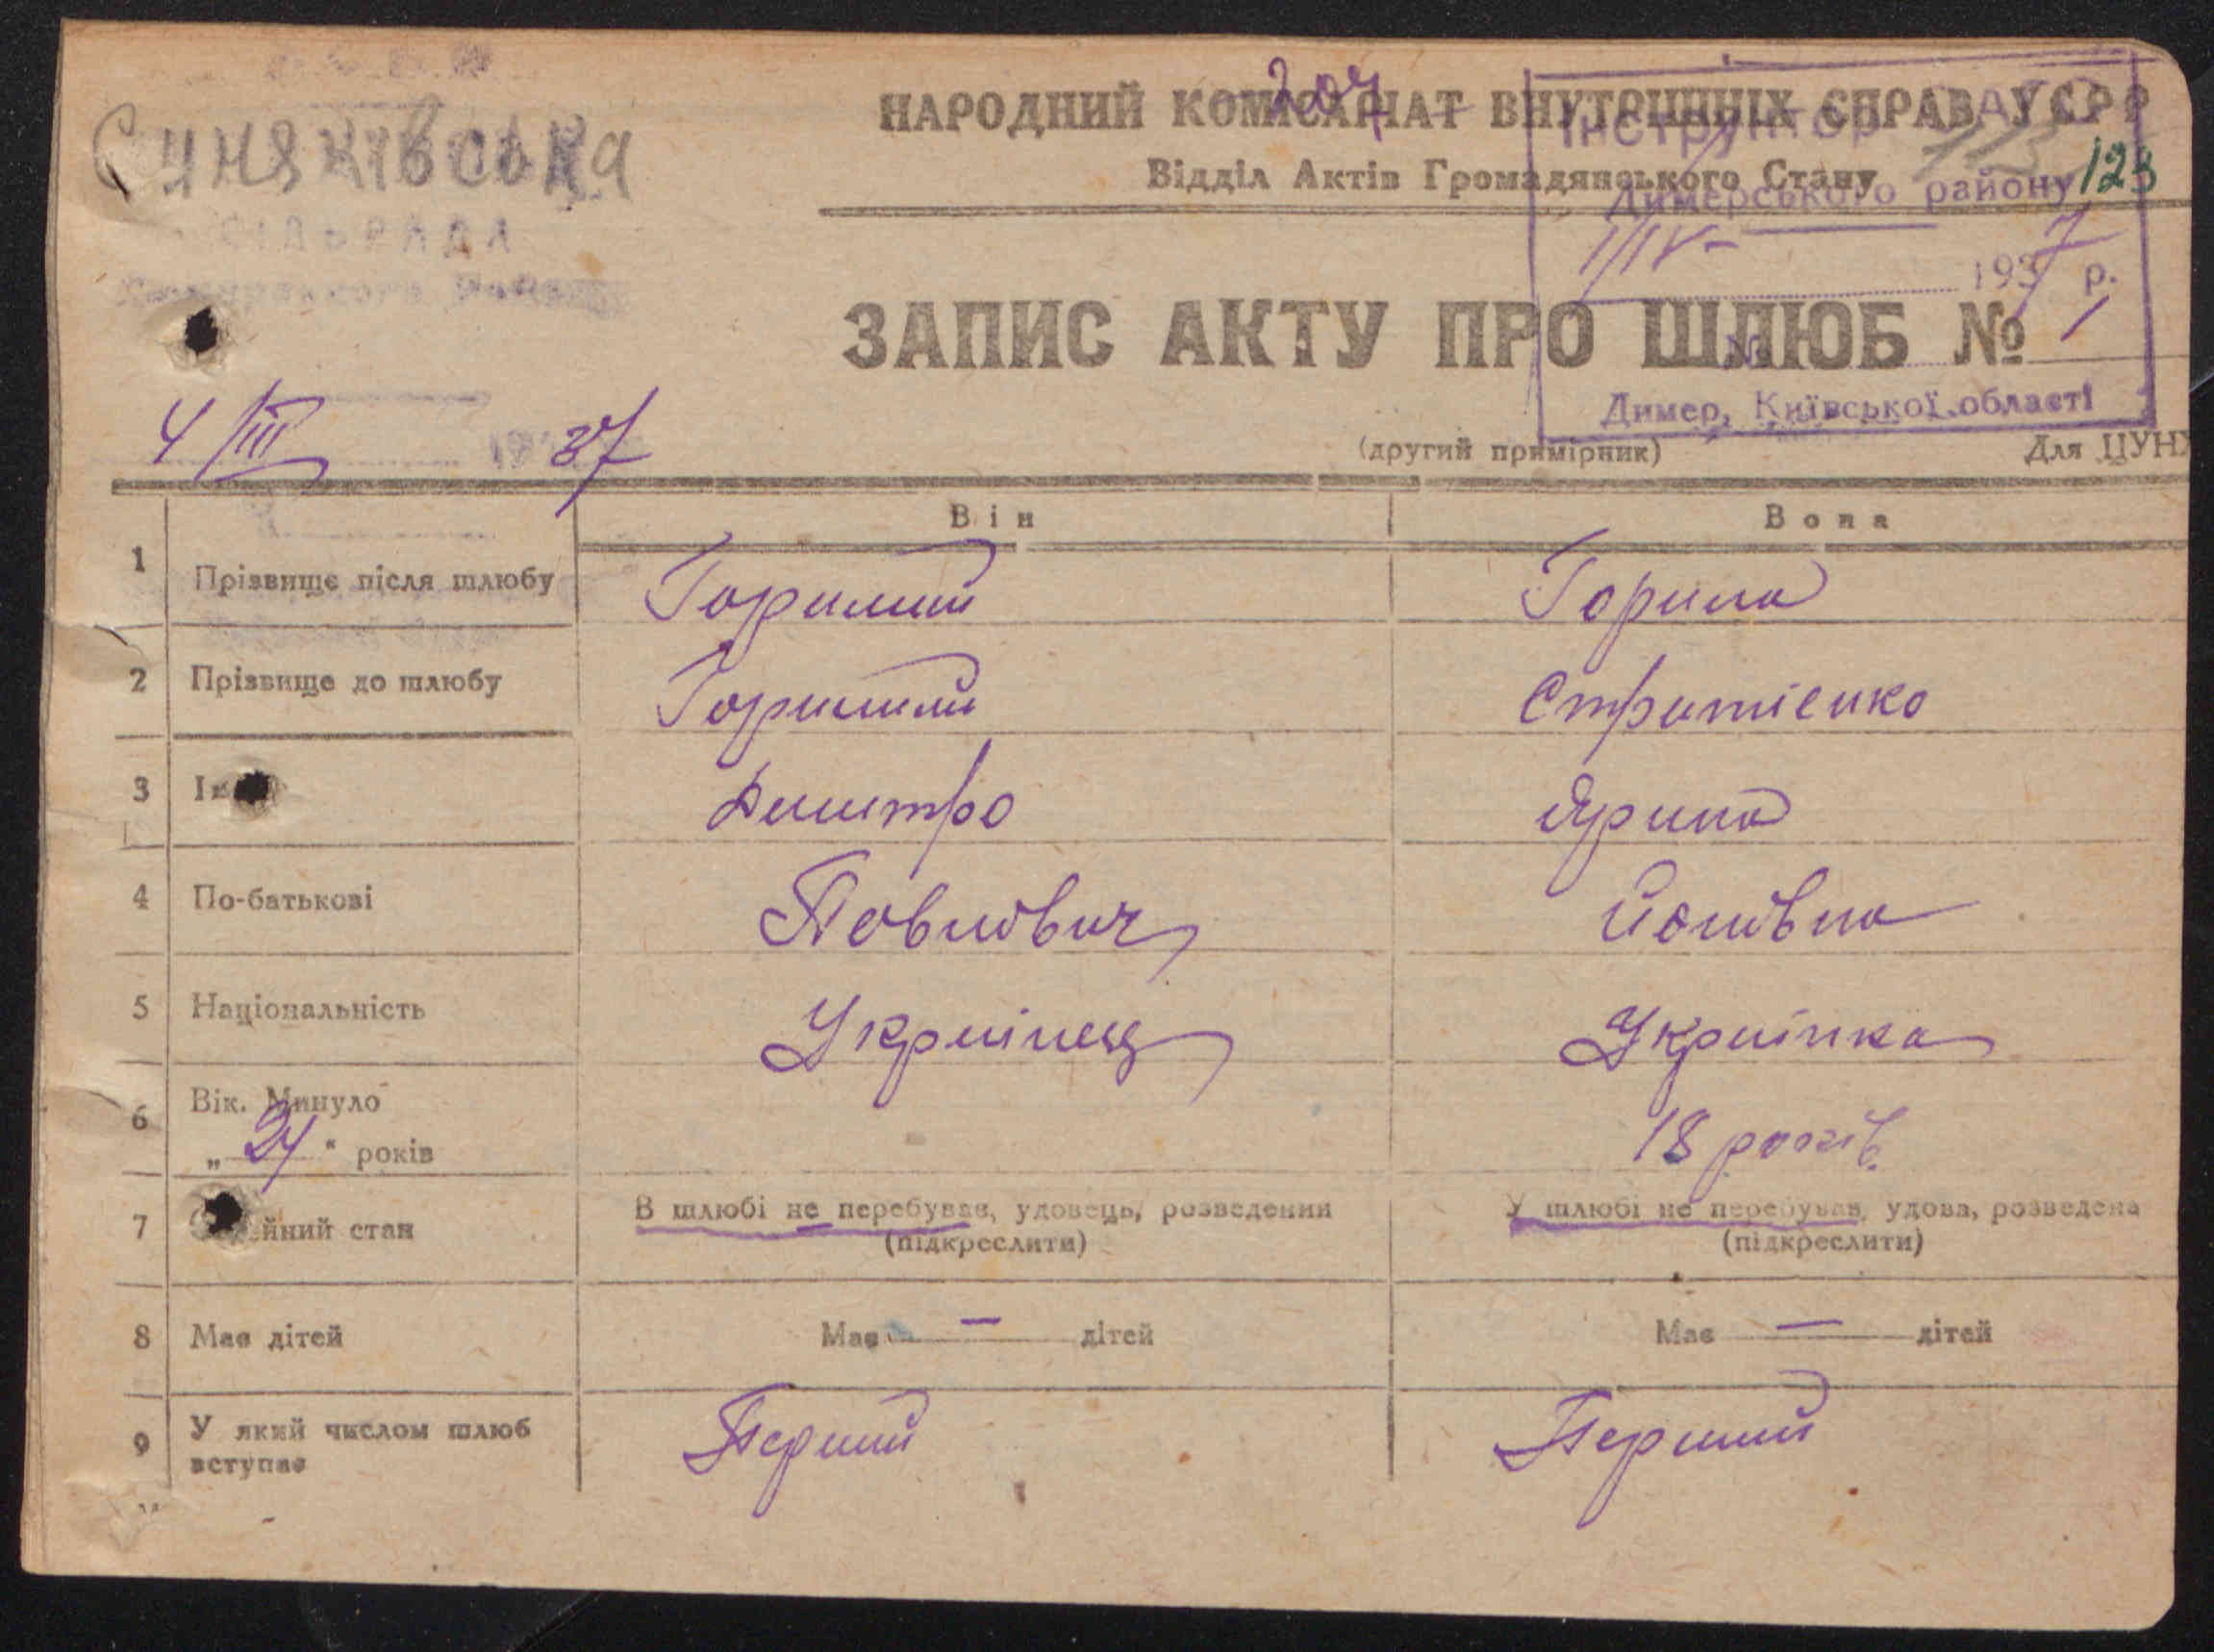 Синяківська
СІЛЬРАДА
НАРОДНИЙ КОМІСАРІАТ ВНУТРІШНІХ СПРАВ УСРР
204
Відділ Актів Громадянського Стану
Інструктор
Димерського району
113
123
1/IV- 1937 р.
ЗАПИС АКТУ ПРО ШЛЮБ № 1
№
Димер, Київської області
4/III 1937
(другий примірник) Для ЦУН
Він Вона
1 Прізвище після шлюбу Горилий Горила
2 Прізвище до шлюбу Горилий
3 Дмитро Ярина
4 По-батькові Павлович
5 Національність Українець Українка
6 Вік. Минуло
„ 24 “ років 18 років.
7 йний стан В шлюбі не перебував, удовець, розведений У шлюбі не перебував, удова, розведена
(підкреслити) (підкреслити)
8 Має дітей Має — дітей Має — дітей
9 У який числом шлюб вступає Перший Перший